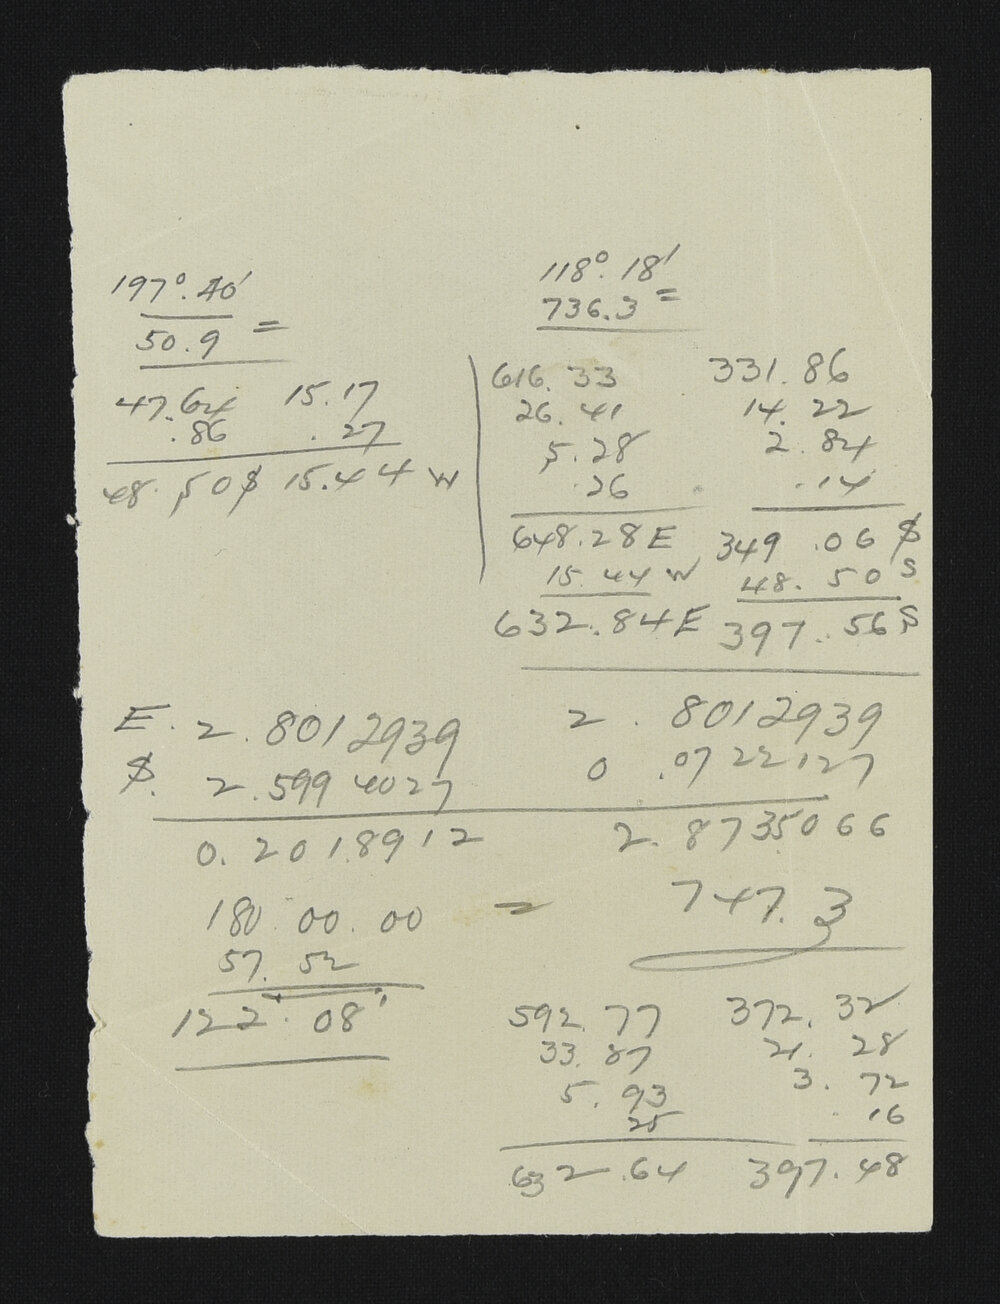 197°.40'
50.9 =
47.64 15.17
.86 .27
48.50 S 15.44 W
118°.18'
736.3 =
616.33 331.86
26.41 14.22
5.28 2.84
.26 .14
648.28 E 349.06 S
15.44 W 48.50 S
632.84 E 397.56 S
E. 2.8012939 2.8012939
S. 2.5994027 0.0722127
0.2018912 2.8735066
180.00.00 = 747.3
57.52
122°.08'
592.77 372.32
33.87 21.28
5.93 3.72
25 .16
632.64 397.48